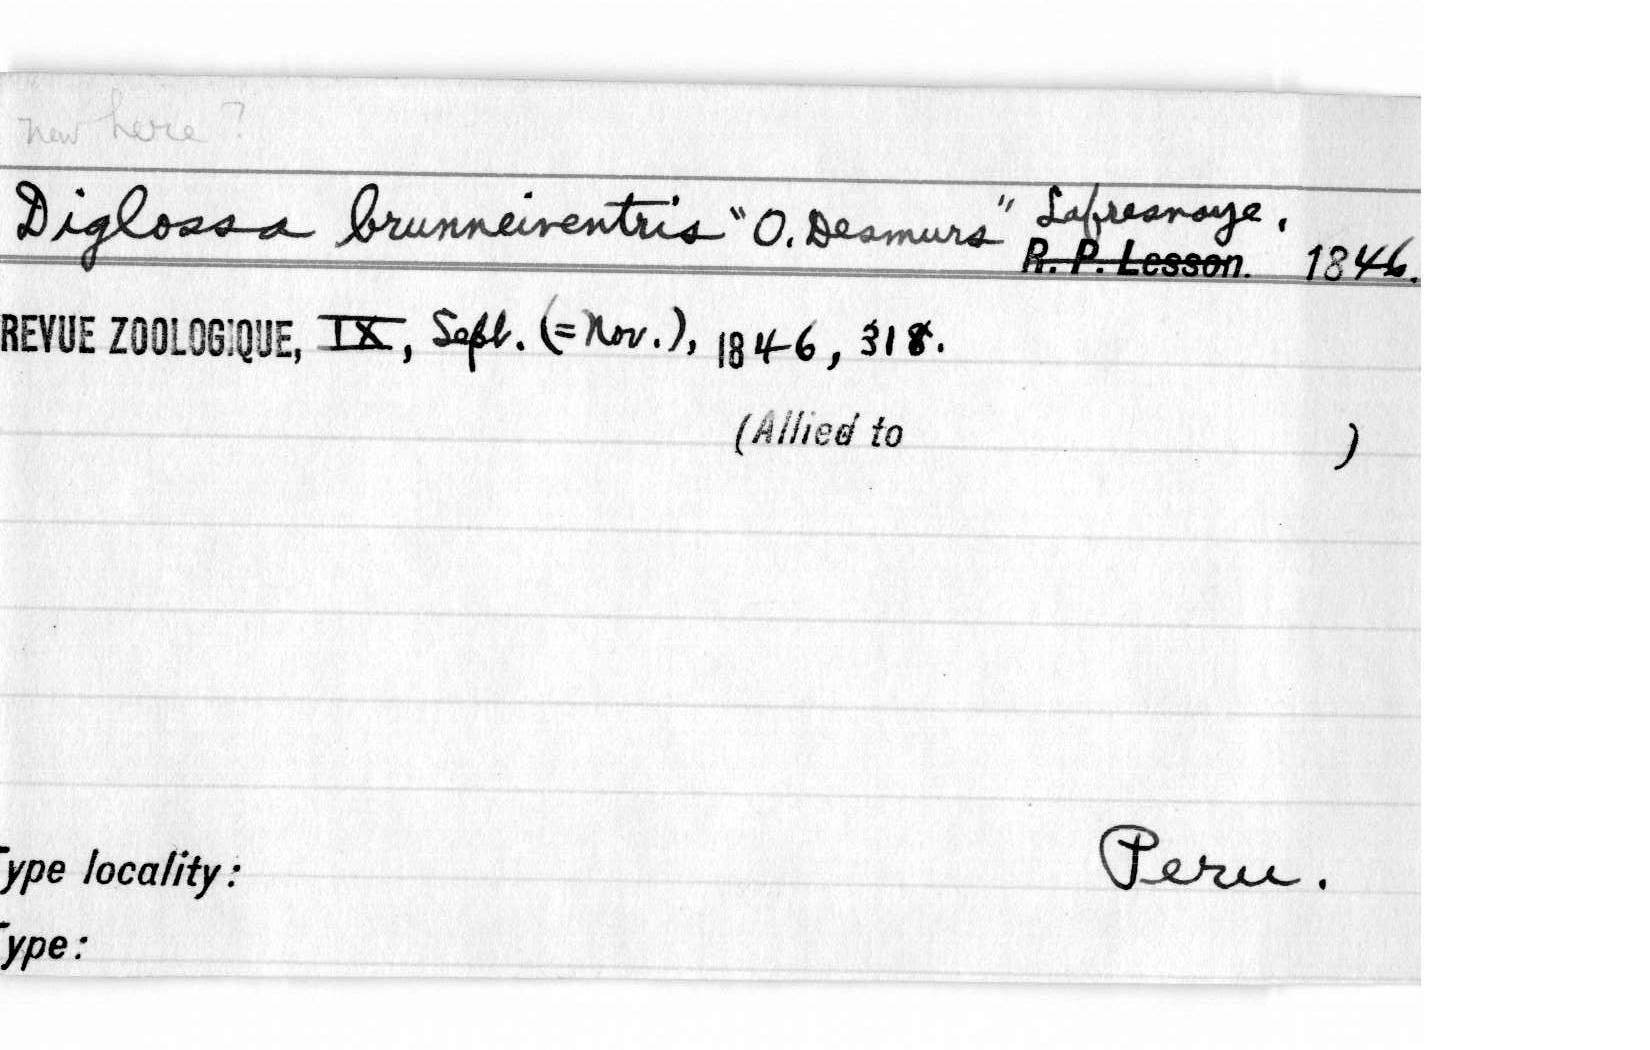 new here?
Diglossa brunneiventris "O. Desmurs" Lafresnaye.
R. P. Lesson. 1846.
REVUE ZOOLOGIQUE, IX, Sept. (=Nov.), 1846, 318.
(Allied to )
Type locality: Peru.
Type: